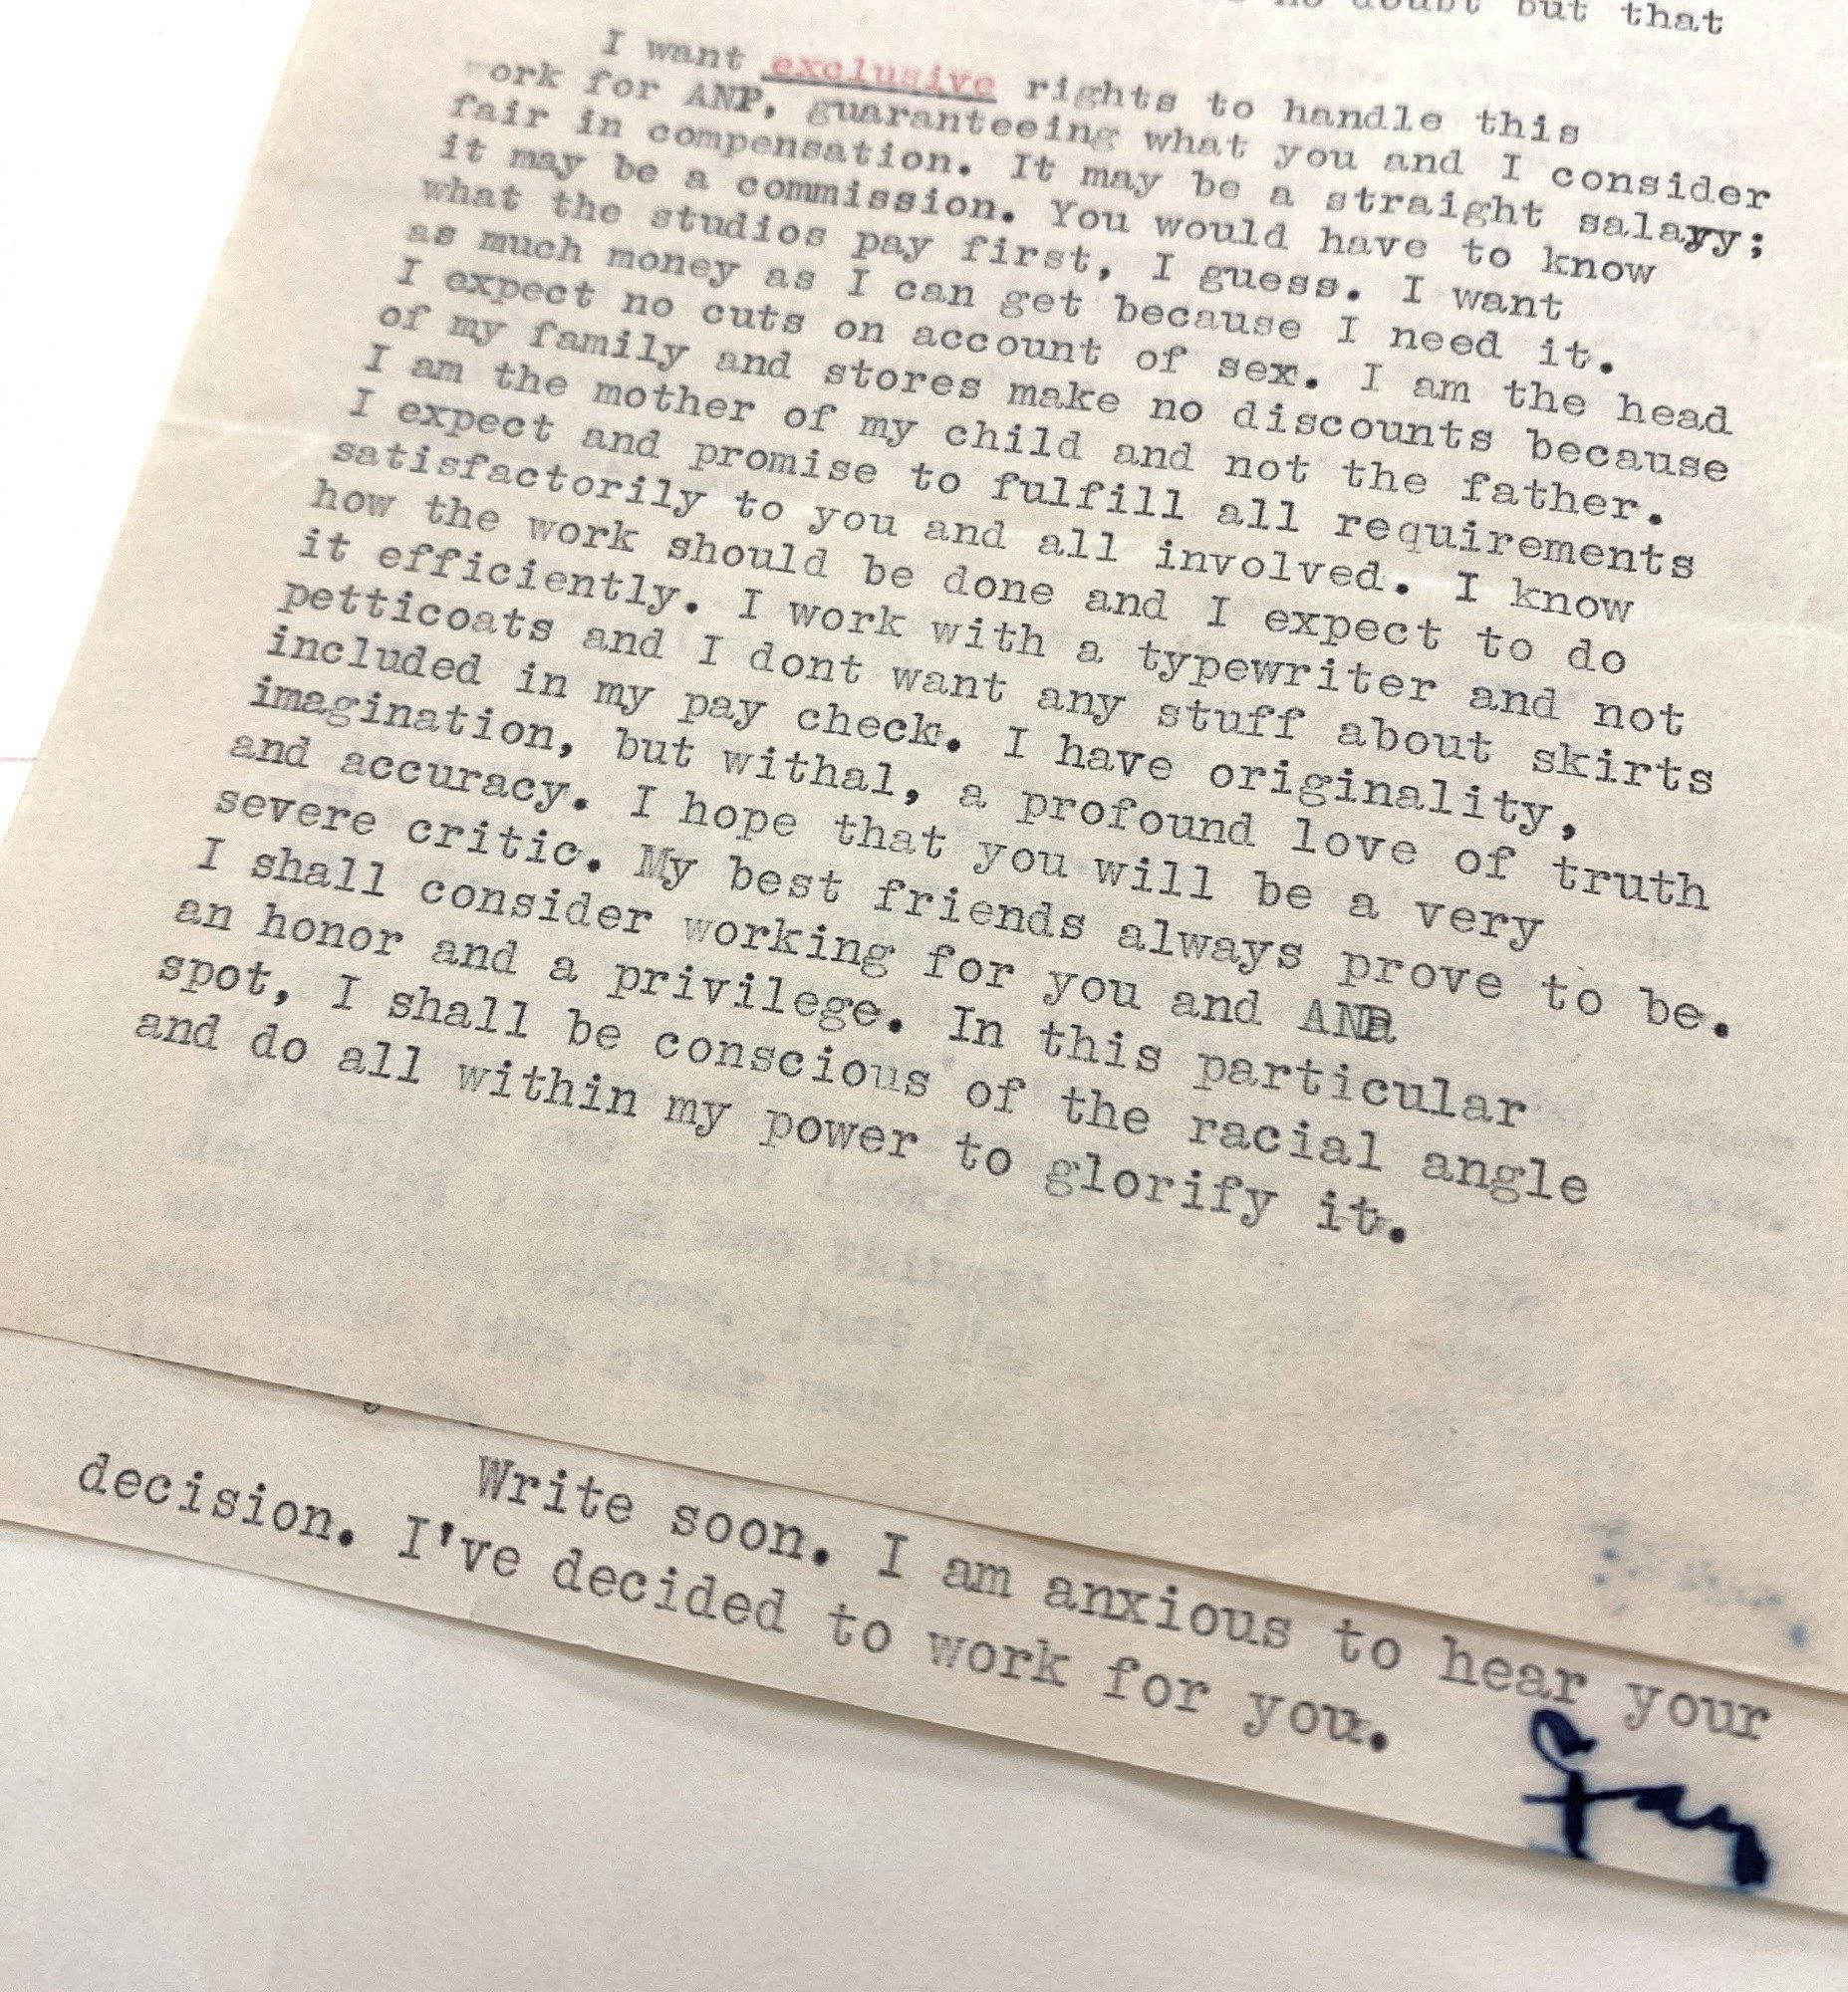 no doubt but that
I want exclusive rights to handle this
work for ANP, guaranteeing what you and I consider
fair in compensation. It may be a straight salayy;
it may be a commission. You would have to know
what the studios pay first, I guess. I want
as much money as I can get because I need it.
I expect no cuts on account of sex. I am the head
of my family and stores make no discounts because
I am the mother of my child and not the father.
I expect and promise to fulfill all requirements
satisfactorily to you and all involved. I know
how the work should be done and I expect to do
it efficiently. I work with a typewriter and not
petticoats and I dont want any stuff about skirts
included in my pay check. I have originality,
imagination, but withal, a profound love of truth
and accuracy. I hope that you will be a very
severe critic. My best friends always prove to be.
I shall consider working for you and ANP
an honor and a privilege. In this particular
spot, I shall be conscious of the racial angle
and do all within my power to glorify it.
Write soon. I am anxious to hear your
decision. I've decided to work for you.
Fay